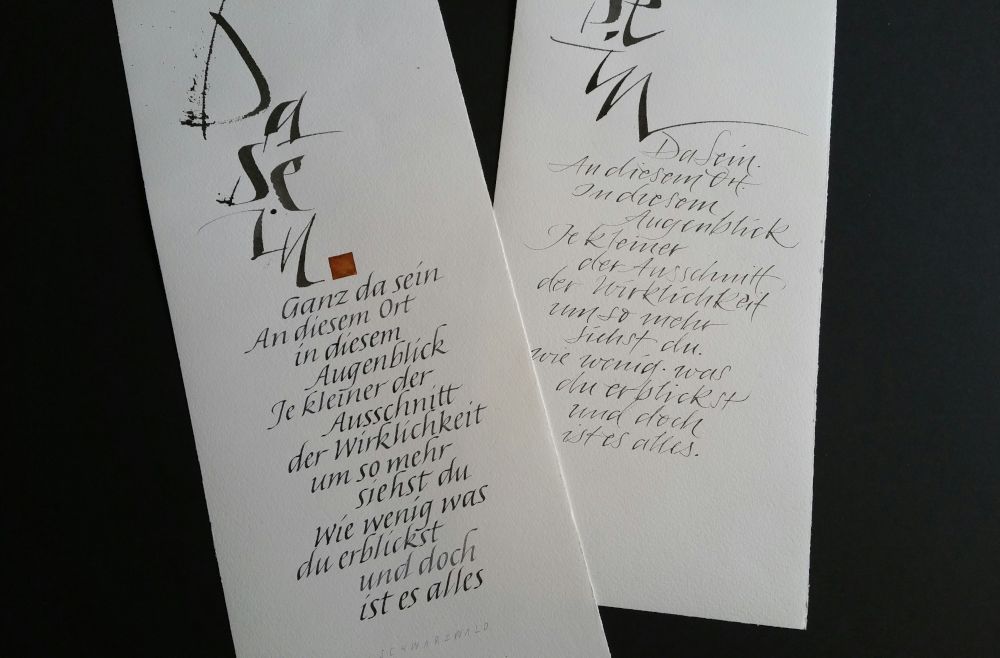 Da
se
in
Ganz da sein
An diesem Ort
in diesem
Augenblick
Je kleiner der
Ausschnitt
der Wirklichkeit
um so mehr
siehst du
Wie wenig was
du erblickst
und doch
ist es alles
SCHWARZWALD
se
in
Da Sein.
An diesem Ort.
In diesem
Augenblick
Je kleiner
der Ausschnitt
der Wirklichkeit
um so mehr
siehst du.
wie wenig. was
du erblickst
und doch
ist es alles.